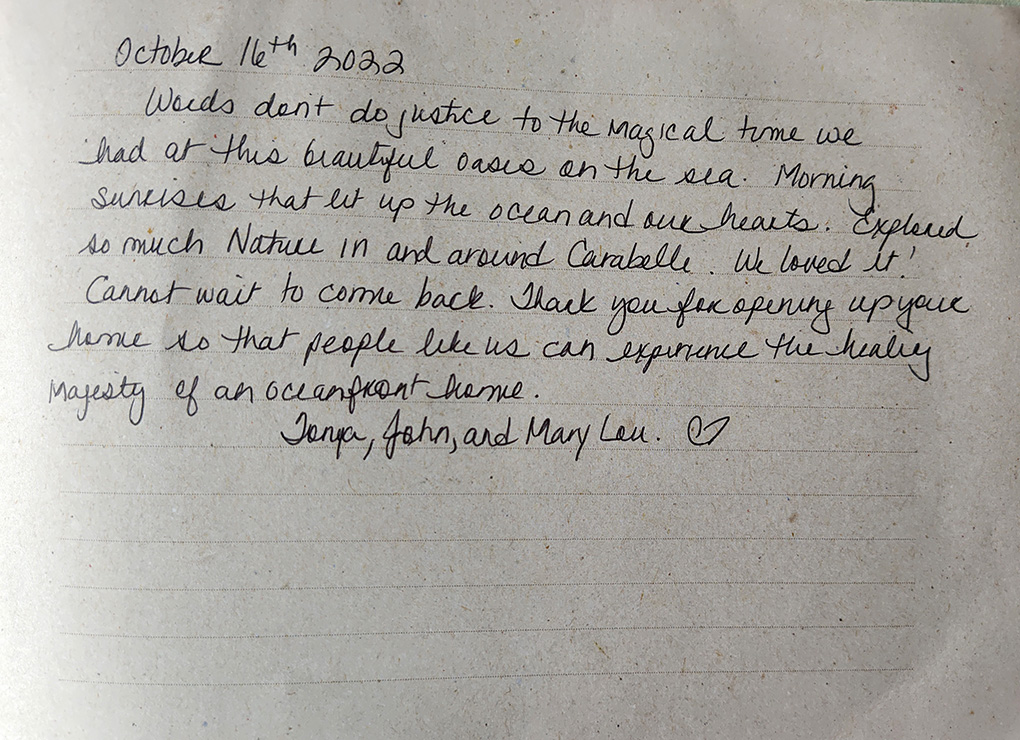 October 16th 2022
Words don't do justice to the magical time we
had at this beautiful oasis on the sea. Morning
sunrises that lit up the ocean and our hearts. Explored
so much Nature in and around Carabelle. We loved it!
Cannot wait to come back. Thank you for opening up your
home so that people like us can experience the healing
Majesty of an oceanfront home.
Tonya, John, and Mary Lou. ♡